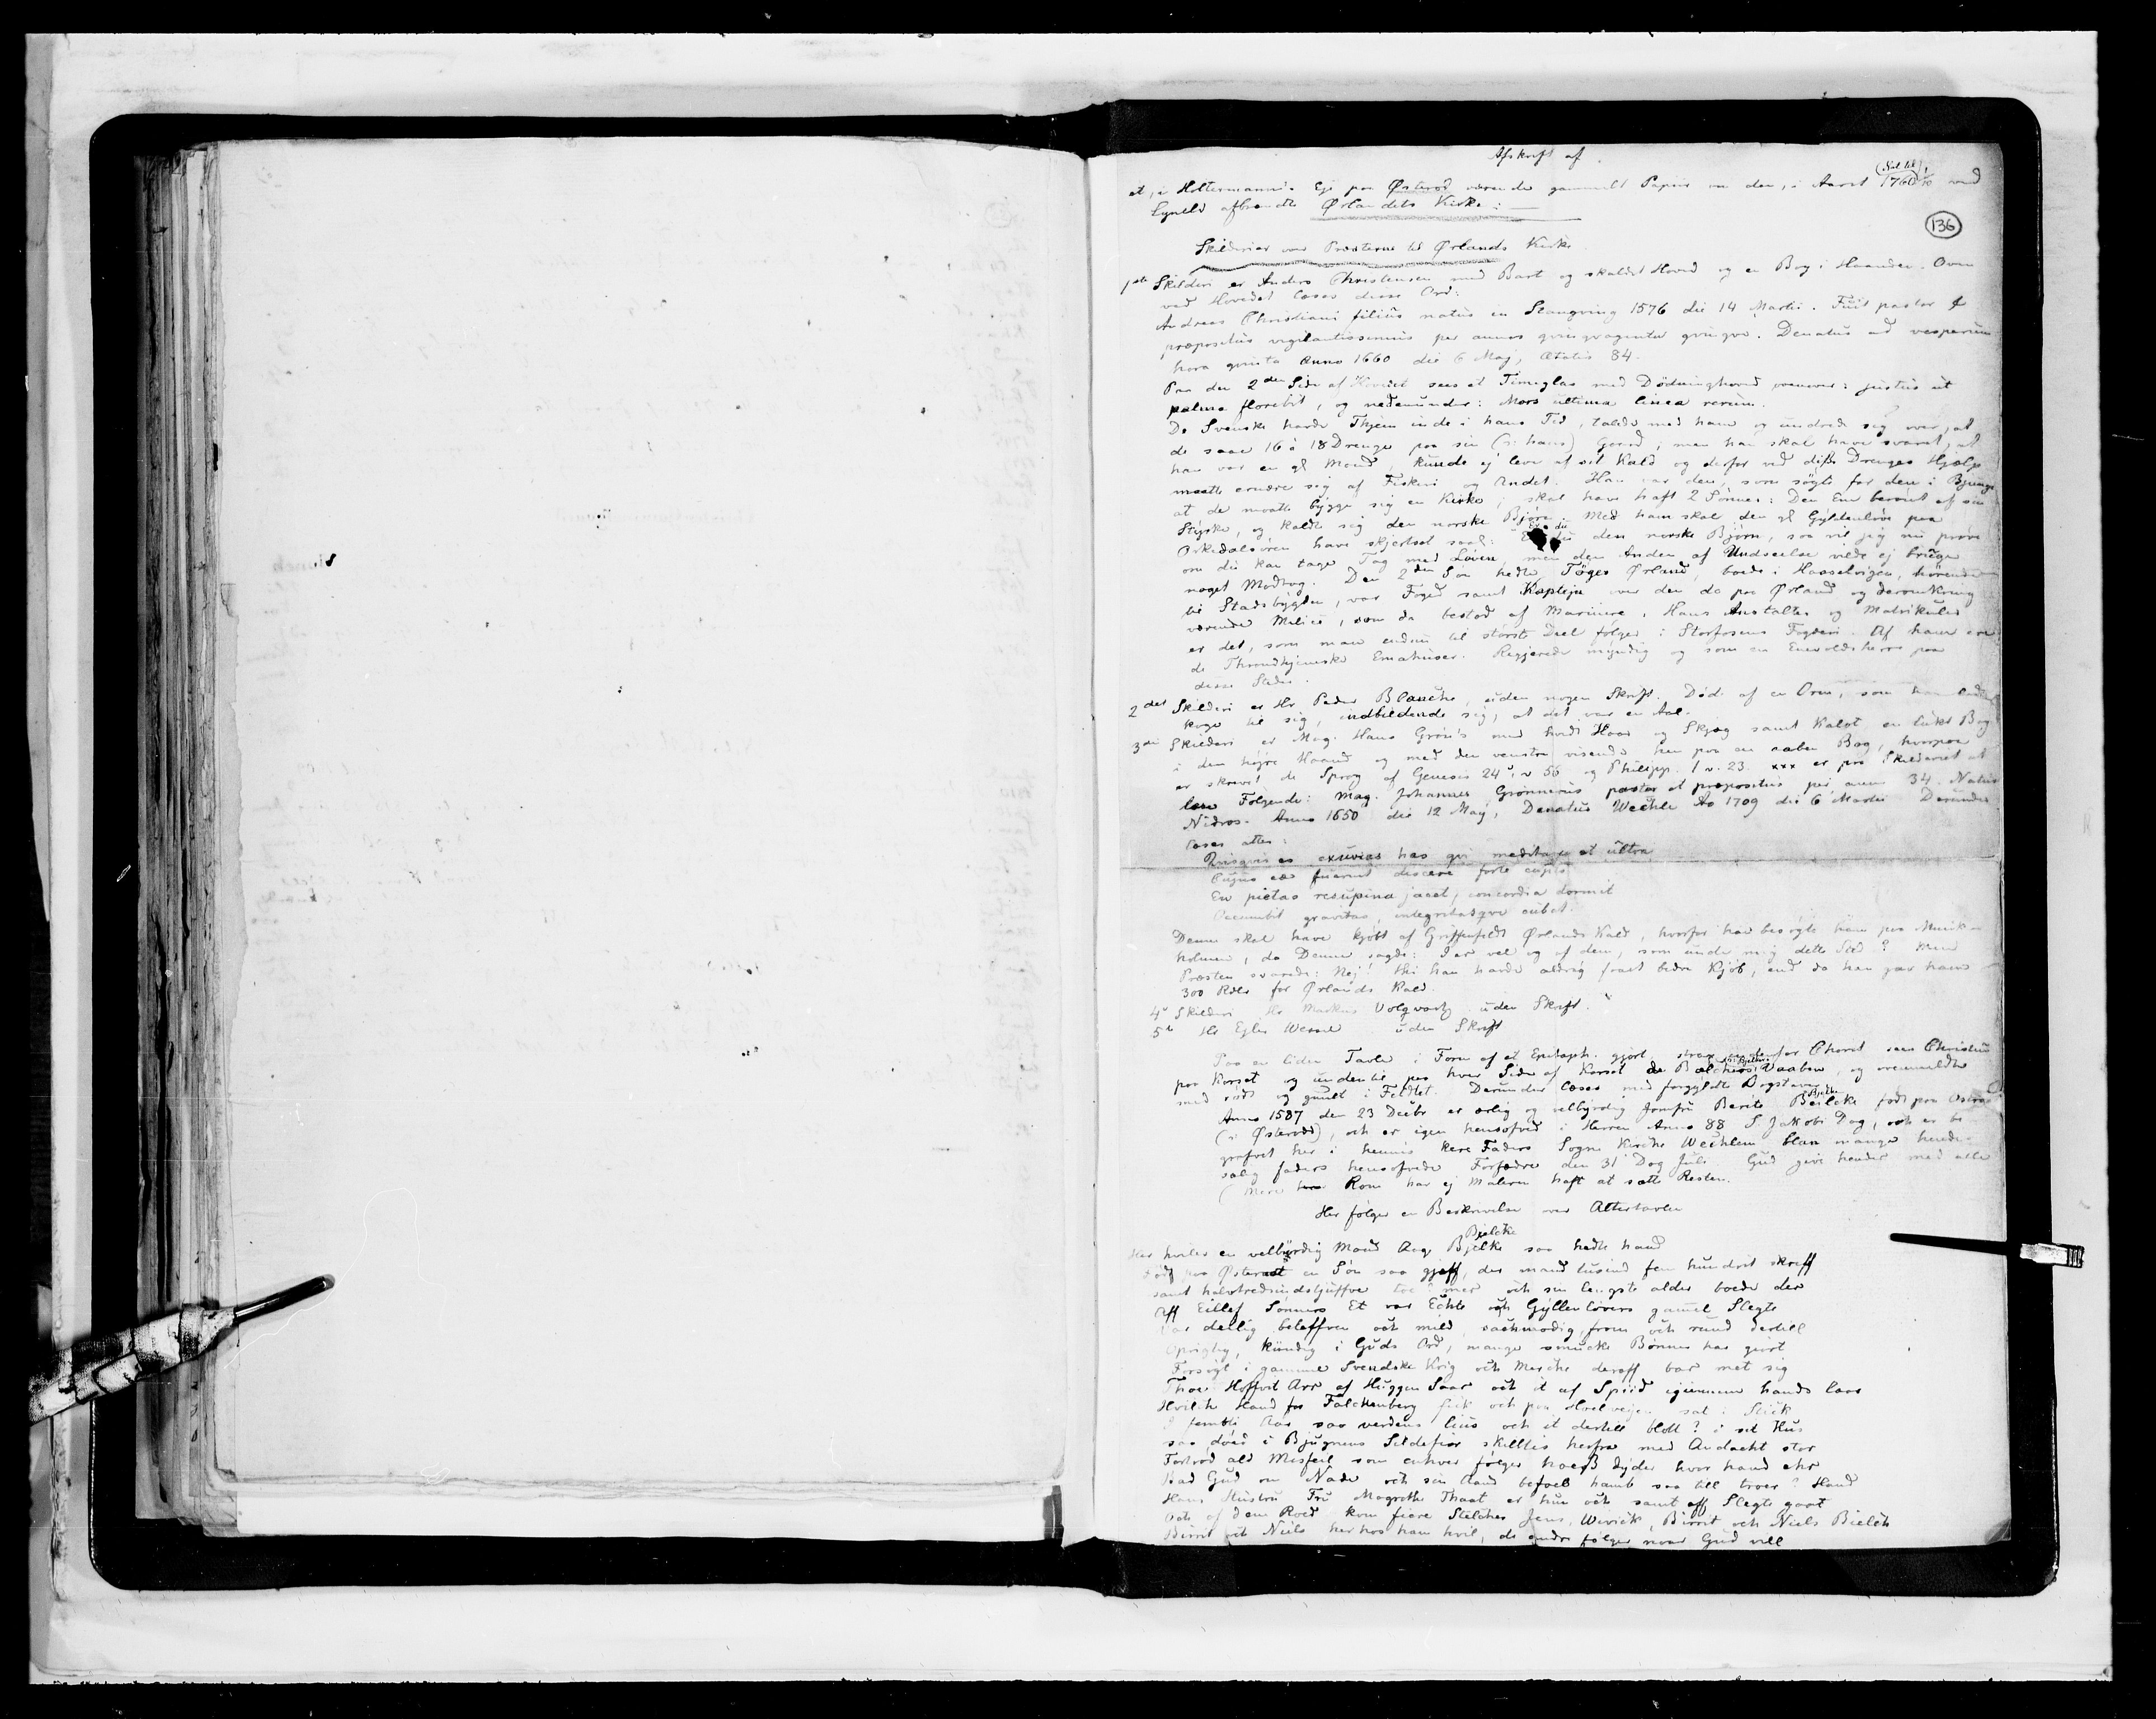 Afskrift af
et, i Holtermanns Eje paa Østeraad værende gammelt Papir om den, i Aaret 1760 ved
Lynild afbrændte Ørlandets Kirke:
136
Skilderier over Præsterne til Ørlands Kirke
1ste Skilderi er Anders Christensen med Bart og skaldet Hoved og en Bog i Haanden. Oven
ved Hovedet læses disse Ord:
Andreas Christiani filius natus in Stangving 1576 die 14 Martii. Fuit pastor &
præpositus vigilantissimus per annos qvinqvaginta qvinqve. Denatus ad vesperum
hora qvinta Anno 1660 die 6 Maj, Ætatis 84.
Paa den 2den Side af Hovedet sees et Timeglas med Dødninghoved ovenover: justus ut
palma florebit, og nedenunder: Mors ultima linea rerum.
De Svenske havde Thjem inde i hans Tid, talede med ham og undrede sig over, at
de saae 16 à 18 Drenge paa sin (ɔ: hans) Gaard; men han skal have svaret, at
han var en gl Mand, kunde ej leve af sit Kald og derfor ved disse Drenges Hjælp
maatte ernære sig af Fiskeri og Andet. Han var den, som søgte for dem i Bjugn
at de maatte bygge sig en Kirke; skal have haft 2 Sønner: Den Ene berømt af sin
Styrke, og kaldte sig den norske Bjørn. Med ham skal den gl Gyldenløve paa
Orkedalsøren have skjertset saal: Er du den norske Bjørn, saa vil jeg nu prøve
om du kan tage Tag med Løven, men den Anden af Undseelse vilde ej bruge
noget Modtag. Den 2den Søn hedte Töger Ørland, boede i Hasselvigen, hørende
til Stadsbygden, var Foged samt Kaptejn over den da paa Ørland og deromkring
værende Milice, som da bestod af Marinere. Hans Anstalter og Matrikuled
er det, som man endnu til største Deel følger i Storfosens Fogderi. Af ham ere
de Throndhjemske Emahuser. Regjerede myndig og som en Enevoldsherre paa
disse Steder.
2det Skilderi er Hr Peder Blanche, uden nogen Skrift. Død af en Orm, som han lod
koge til sig, indbildende sig, at det var en Aal.
3die Skilderi er Mag. Hans Grøn's med hvidt Haar og Skjæg samt Kalot, en lukt Bog
i den højre Haand og med den venstre visende hen paa en aaben Bog, hvorpaa
er skrevet de Sprog af Genesis 24, v 56 og Philipp. 1 v. 23. xxx er paa Skilderiet at
læse Følgende: Mag. Johannes Grønnerus pastor et præpositus per annos 34. Natus
Nidros. Anno 1650 die 12 Maij, Denatus Wechle Ao 1709 die 6 Martii Derunder
læses atter:
Qvisqvis es exuvias has qvi meditare et ultra
Cujus eæ fuerint discere forte cupis
En pietas resupina jacet, concordia dormit
Occumbit gravitas, integritasqve cubat.
Denne skal have kjøbt af Griffenfeldt Ørlands Kald, hvorfor han besøgte ham paa Munk-
holmen, da Denne sagde: I er vel og af dem, som unde mig dette Sted? Men
Præsten svarede: Nej! Thi han havde aldrig faaet bedre Kjøb, end da han gav ham
300 Rdlr for Ørlands Kald.
4de Skilderi Hr Markus Volqvartz uden Skrift.
5te Hr Ejler Wessel uden Skrift
Paa en liden Tavle i Form af et Epitaph. gjort, strax nedenfor Choret sees Christus
paa Korset og undentil paa hver Side af Korset de Bælchers Vaaben, og ovenmeldte
med rødt og guult i Feldtet. Derunder læses med forgyldte Bogstaver
Anno 1587 den 23 Decbr er ærlig og velbyrdig Jomfru Berite Beilcke født paa Østraa
(ɔ: Østeraad), och er igen hensofved i Herren Anno 88 S. Jakobs Dag, och er be-
grafvet her i hennis kere Faders Sogne Kircke Wechlem blan mange hendes
salig Faders hensofvede Forfædre den 31 Dag Juli. Gud give hender med alle
(Mere Rom har ej Maleren haft at sætte Resten.
Her følger en Beskrivelse over Altertavlen
Bjelcke
Her hviler en velbyrdig Mand Aage Bjelke saa hedte hand
Född paa Østeraat en Søn saa gjeff, der mand tusind fem hundret skreff
samt halvtredsindstjuffve toe mer och sin lengste alder boede der
Aff Eillef Sønners Et var Echte och Gyllenløvers gamel Slegte
Var dellig beleffven och mild, sachmodig from och rund dertill
Oprigtig, kundig i Guds Ord, mange smucke Bønner har giort
Forsögt i gamme Svendske Krig och Mercke deraff bar met sig
Thoe Hoffvit Arr af Huggen Saar och it af Spiud igiennem hands laar
Hvilch Hand for Falckenberg fick och paa Hoelveijen sat i Stick
I fembti Aar saa verdens lius och it dertill blott? i sit Hus
saa döed i Bjugnens Sildefior skilltis herfra med Andacht stor
Fortrød ald Misfeil som enhver følger hoess dyder hvor hand ehr
Bad Gud om Nåde och sin Aand befoel hamb saa till troer? Hand
Hans Hustru Fru Magrethe Thaat er hun och samt aff Slegte goot
Och af dem Roed kom fiere Stelcher Jens, Wivick, Birrit och Niels Bielch
Birrit och Niels her hos ham hvil, de andre følger naar Gud vill